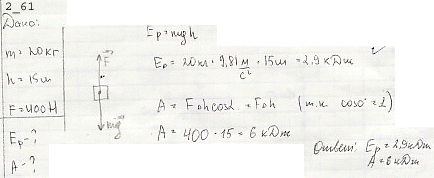 2_61
Дано:
m = 20кг
h = 15м
F = 400Н
Eр - ?
A - ?
F
mg
Eр = mgh
Eр = 20кг · 9,81 м/с² · 15м = 2,9 кДж
A = F·h cosα = F·h (т.к. cos0° = 1)
A = 400 · 15 = 6 кДж
Ответ: Eр = 2,9кДж
A = 6 кДж